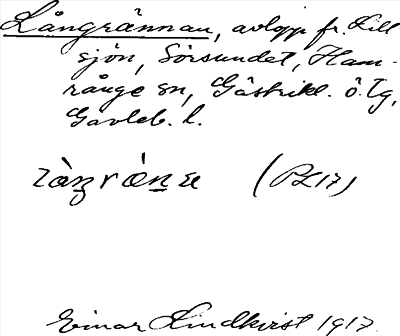 Långrännan, avlopp fr. Lill
sjön, Sörsundet, Ham-
rånge sn, Gästrikl. ö. Tg,
Gävleb. l.
(PL17)
Einar Lindkvist 1917